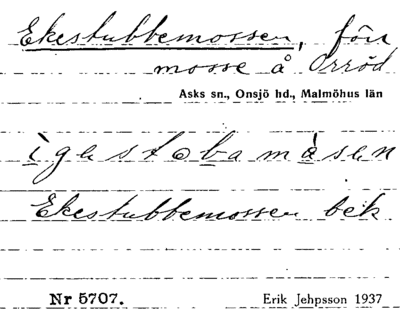 Ekestubbemossen, förr
mosse å Orröd
Asks sn., Onsjö hd., Malmöhus län
ìgastobamàsen
Ekestubbemossen bek
Nr 5707. Erik Jehpsson 1937